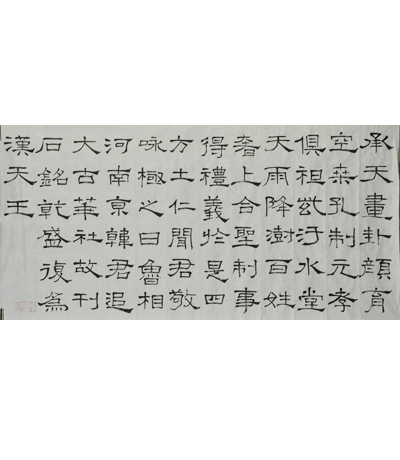 承天畫卦顏育
空桒孔制元孝
俱祖汙水堂
天雨降澍百姓
奢上合聖制事
得禮義於是四
方土仁聞君敬
咏極之曰魯相
河南京韓君追
大古華社故刊
石銘乾盛復為
漢天王